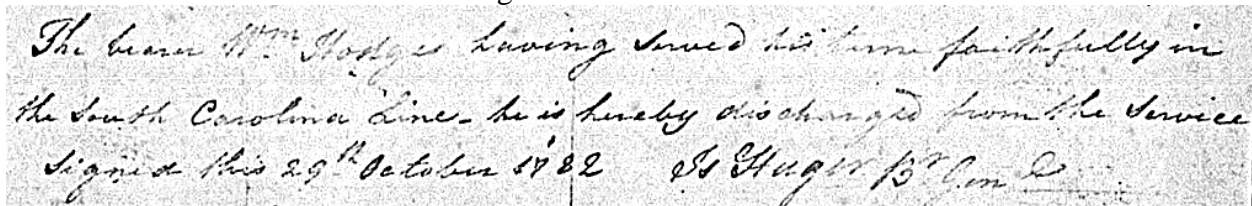 The bearer Wm Hodge having served his time faithfully in
the South Carolina Line - he is hereby discharged from the Service
Signed this 29th October 1782 Is Huger Br Gen